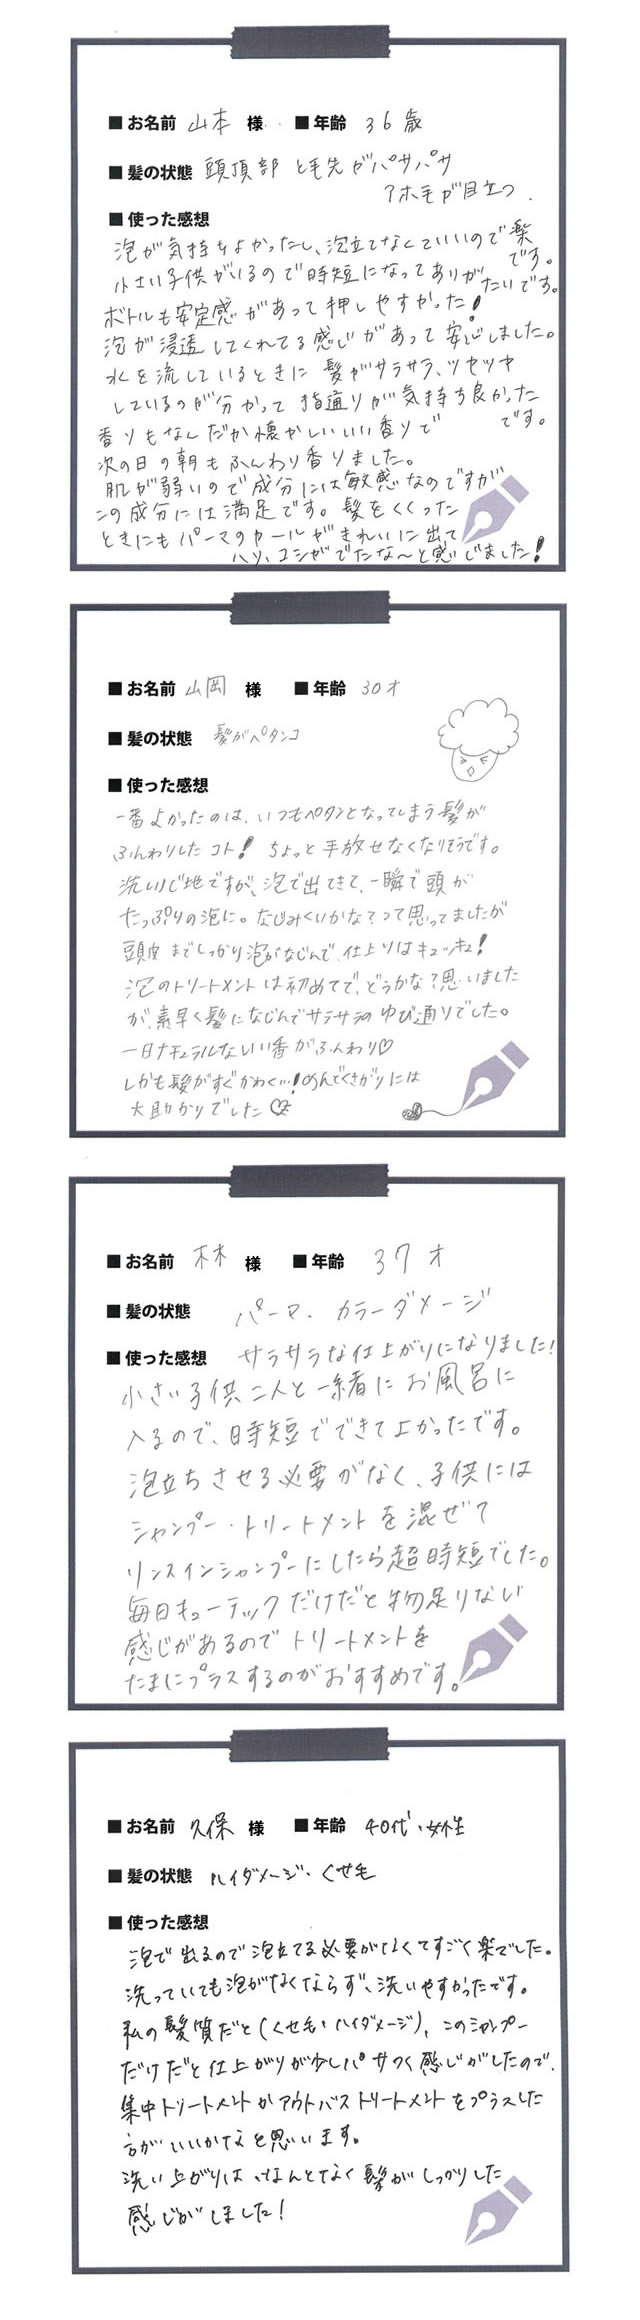 ■ お名前 山本 様 ■ 年齢 36歳
■ 髪の状態 頭頂部と毛先がパサパサ
アホ毛が目立つ.
■ 使った感想
泡が気持ちよかったし、泡立てなくていいので楽です。
小さい子供がいるので時短になってありがたいです。
ボトルも安定感があって押しやすかった!
泡が浸透してくれてる感じがあって安心しました。
水を流しているときに髪がサラサラ、ツヤツヤ
しているのが分かって指通りが気持ち良かったです。
香りもなんだか懐かしいいい香りで
次の日の朝もふんわり香りました。
肌が弱いので成分には敏感なのですが
この成分には満足です。髪をくくった
ときにもパーマのカールがきれいに出て
ハリ、コシがでたな〜と感じました!
■ お名前 山岡 様 ■ 年齢 30才
■ 髪の状態 髪がペタンコ
■ 使った感想
一番よかったのは、いつもペタンとなってしまう髪が
ふんわりしたコト! ちょっと手放せなくなりそうです。
洗いじ地ですが、泡で出てきて、一瞬で頭が
たっぷりの泡に。なじみくいかな?って思ってましたが
頭皮までしっかり泡がなじんで、仕上りはキュッキュ!
泡のトリートメントは初めてで、どうかな?思いました
が、素早く髪になじんでサラサラのゆび通りでした。
一日ナチュラルないい香がふんわり♡
しかも髪がすぐかわく…!めんどくさがりには
大助かりでした♡
■ お名前 林 様 ■ 年齢 37才
■ 髪の状態 パーマ. カラーダメージ
■ 使った感想 サラサラな仕上がりになりました!
小さい子供二人と一緒にお風呂に
入るので、時短でできてよかったです。
泡立ちさせる必要がなく、子供には
シャンプー・トリートメントを混ぜて
リンスインシャンプーにしたら超時短でした。
毎日キューテックだけだと物足りない
感じがあるのでトリートメントを
たまにプラスするのがおすすめです。
■ お名前 久保 様 ■ 年齢 40代・女性
■ 髪の状態 ハイダメージ・くせ毛
■ 使った感想
泡で出るので泡立てる必要がなくてすごく楽でした。
洗っていても泡がなくならず、洗いやすかったです。
私の髪質だと(くせ毛・ハイダメージ)、このシャンプー
だけだと仕上がりが少しパサつく感じがしたので、
集中トリートメントかアウトバストリートメントをプラスした
方がいいかなと思います。
洗い上がりは、なんとなく髪がしっかりした
感じがしました!